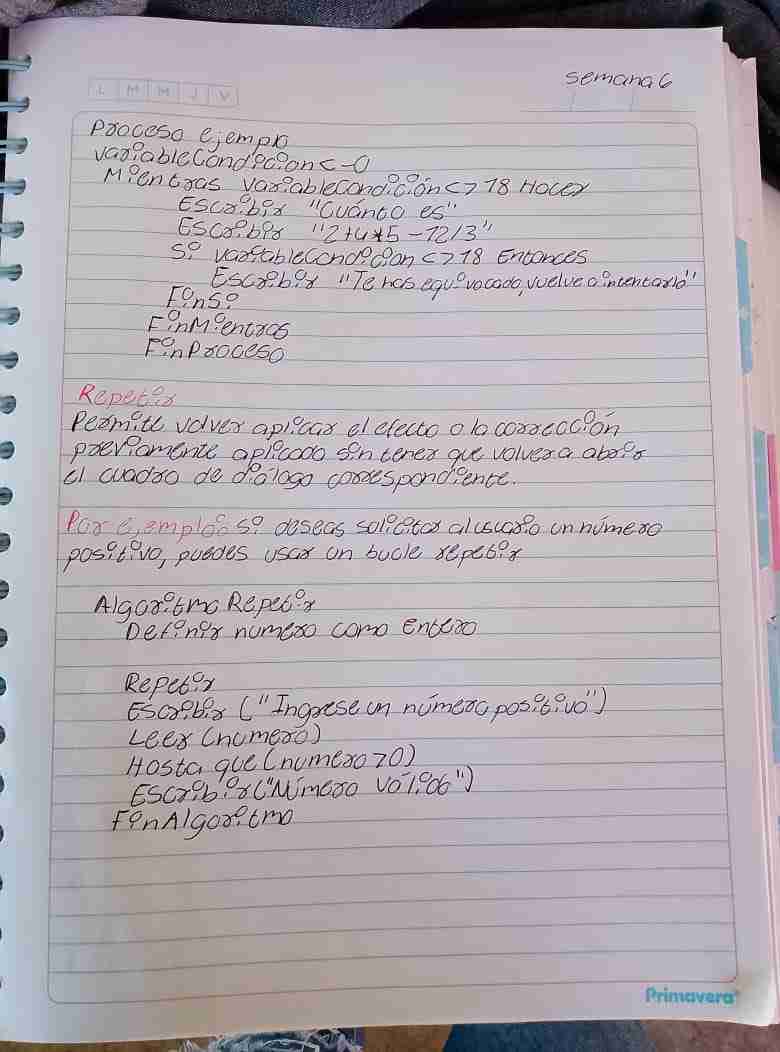 L M M J V
Semana 6
Proceso ejemplo
variableCondición<-0
Mientras variableCondición<>18 Hacer
Escribir "Cuánto es"
Escribir "2+4*5-12/3"
Si variableCondicion<>18 Entonces
Escribir "Te has equivocado, vuelve a intentarlo"
FinSi
FinMientras
FinProceso
Repetir
Permite volver aplicar el efecto o la corrección
previamente aplicado sin tener que volver a abrir
el cuadro de diálogo correspondiente.
Por ejemplo: si deseas solicitar al usuario un número
positivo, puedes usar un bucle repetir
Algoritmo Repetir
Definir numero como Entero
Repetir
Escribir ("Ingrese un número positivo")
Leer (numero)
Hasta que (numero>0)
Escribir ("Número válido")
FinAlgoritmo
Primavera